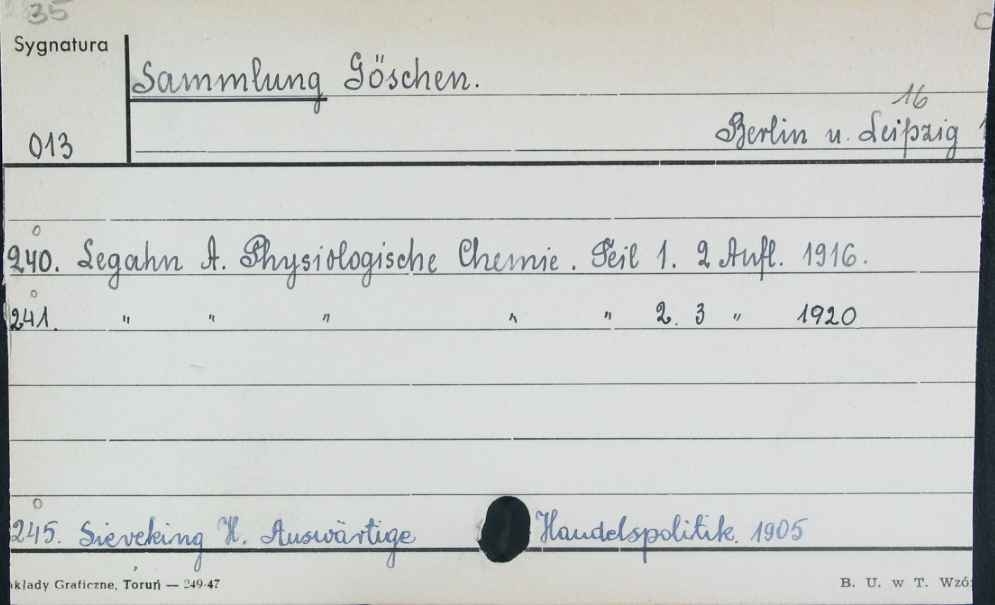 35
Sygnatura
Sammlung Göschen.
16
Berlin u. Leipzig
013
240. Legahn A. Physiologische Chemie. Teil 1. 2 Aufl. 1916.
241. " " " " " 2. 3 " 1920
245. Sieveking H. Auswärtige Handelspolitik. 1905
kłady Graficzne, Toruń — 249-47
B. U. w T. Wzó